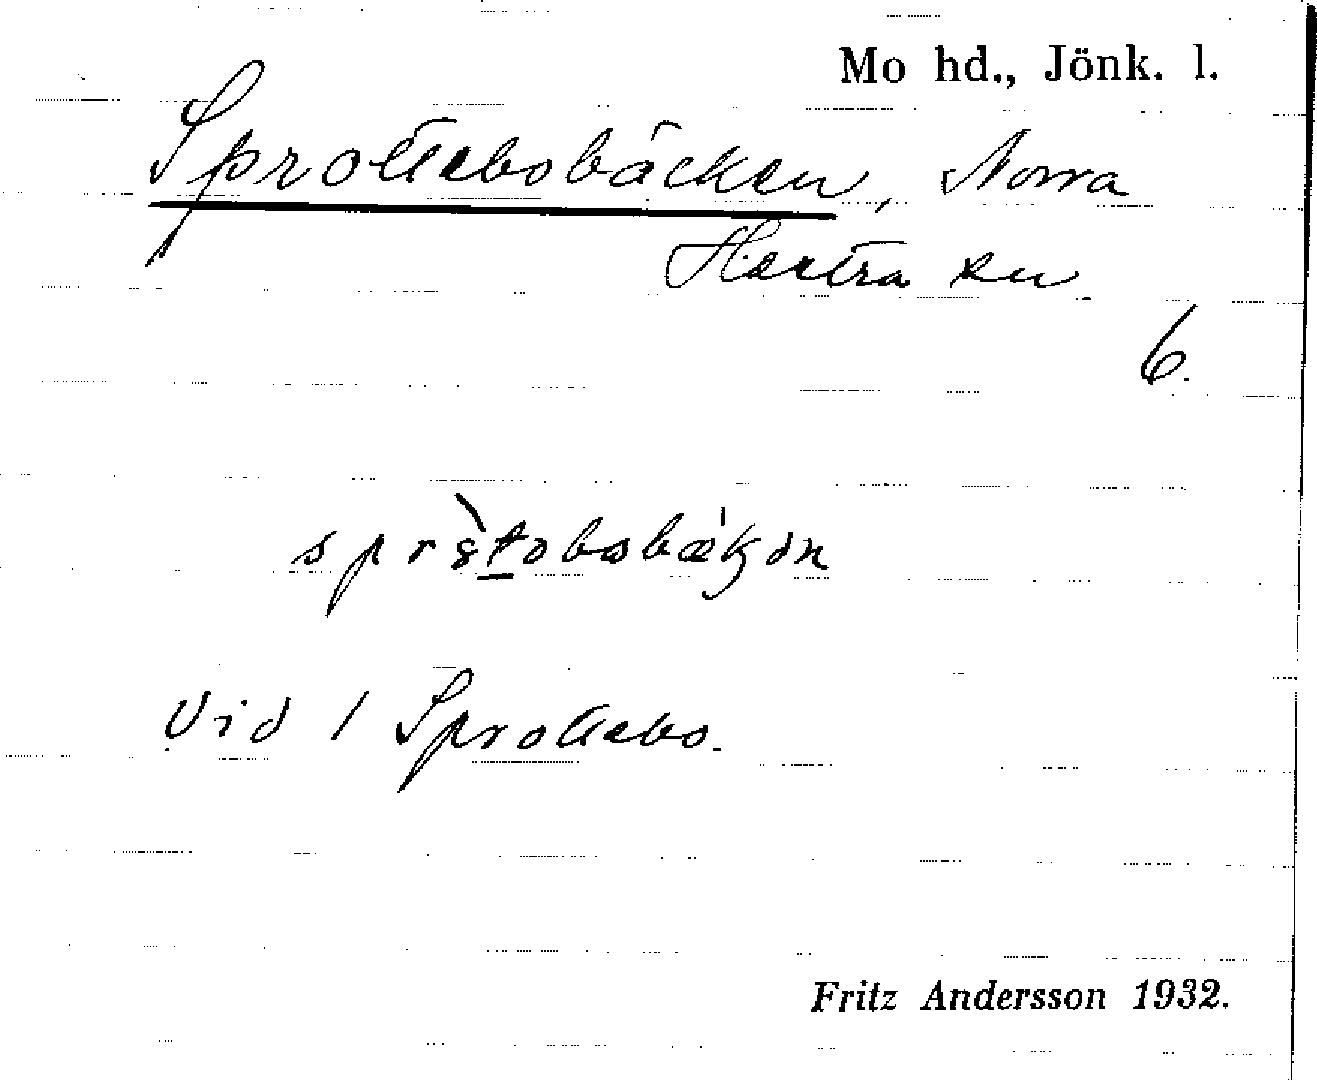 Mo hd., Jönk. l.
Sprottebobäcken, Norra
Hestra sn
6.
Vid 1 Sprottebo.
Fritz Andersson 1932.